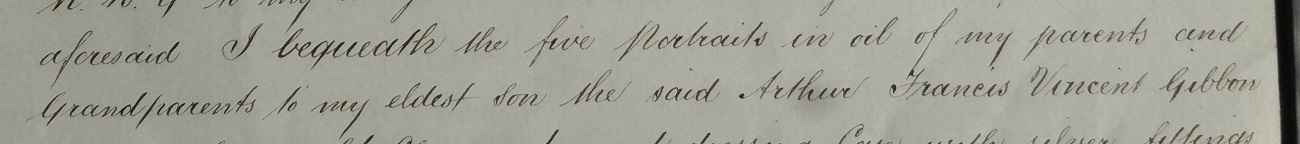 aforesaid I bequeath the five Portraits in oil of my parents and
Grandparents to my eldest son the said Arthur Francis Vincent Gibbon
dressing Case with silver fittings